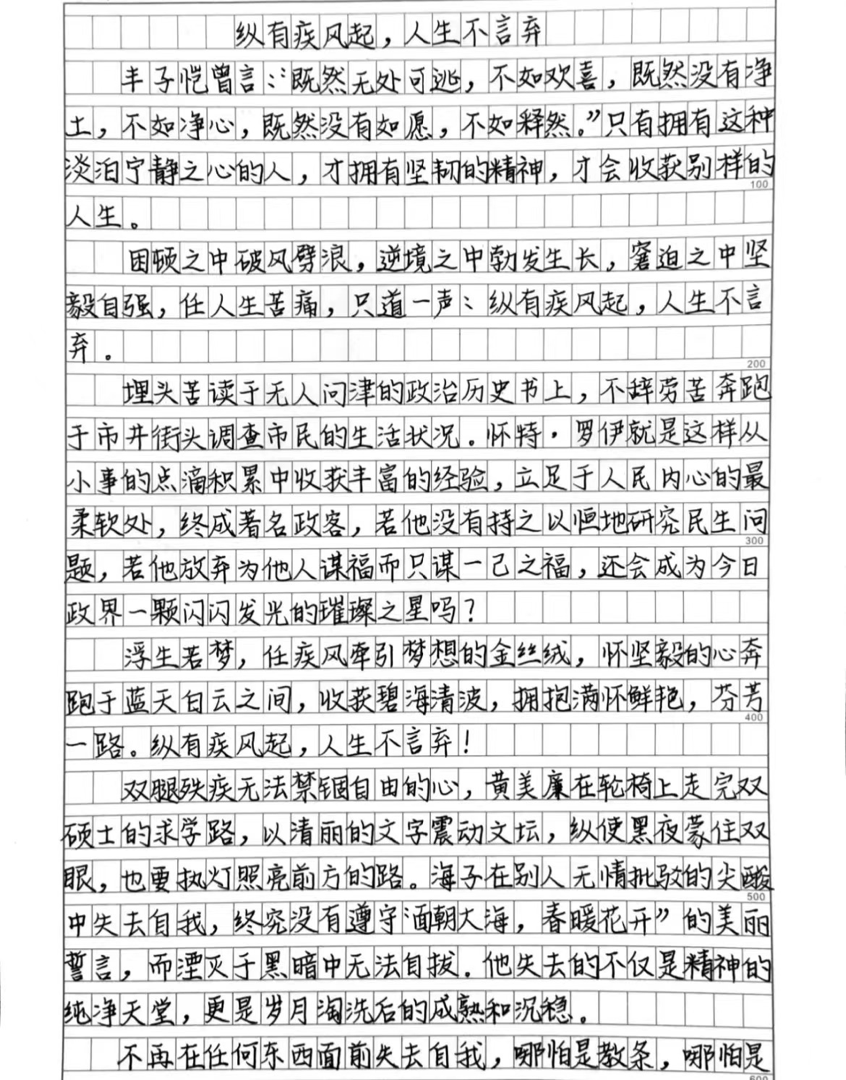 纵有疾风起，人生不言弃
丰子恺曾言：“既然无处可逃，不如欢喜，既然没有净
土，不如净心，既然没有如愿，不如释然。”只有拥有这种
淡泊宁静之心的人，才拥有坚韧的精神，才会收获别样的
100
人生。
困顿之中破风劈浪，逆境之中勃发生长，窘迫之中坚
毅自强，任人生苦痛，只道一声：纵有疾风起，人生不言
弃。
200
埋头苦读于无人问津的政治历史书上，不辞劳苦奔跑
于市井街头调查市民的生活状况。怀特·罗伊就是这样从
小事的点滴积累中收获丰富的经验，立足于人民内心的最
柔软处，终成著名政客，若他没有持之以恒地研究民生问
300
题，若他放弃为他人谋福而只谋一己之福，还会成为今日
政界一颗闪闪发光的璀璨之星吗？
浮生若梦，任疾风牵引梦想的金丝绒，怀坚毅的心奔
跑于蓝天白云之间，收获碧海清波，拥抱满怀鲜艳，芬芳
400
一路。纵有疾风起，人生不言弃！
双腿残疾无法禁锢自由的心，黄美廉在轮椅上走完双
硕士的求学路，以清丽的文字震动文坛，纵使黑夜蒙住双
眼，也要执灯照亮前方的路。海子在别人无情批驳的尖酸
500
中失去自我，终究没有遵守“面朝大海，春暖花开”的美丽
誓言，而湮灭于黑暗中无法自拔。他失去的不仅是精神的
纯净天堂，更是岁月淘洗后的成熟和沉稳。
不再在任何东西面前失去自我，哪怕是教条，哪怕是
600